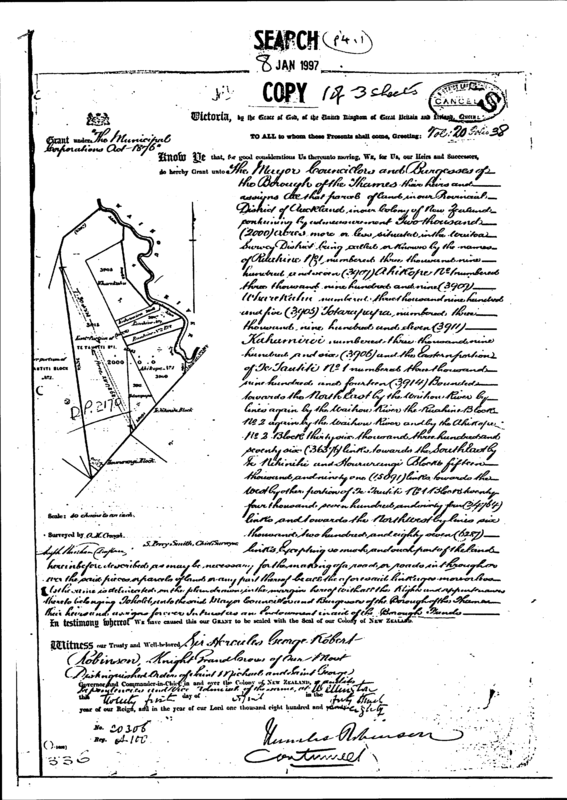 SEARCH p4.1
8 JAN 1997
COPY 1 of 3 sheets
CANCEL
Victoria, by the Grace of God, of the United Kingdom of Great Britain and Ireland, Queen:
TO ALL to whom these Presents shall come, Greeting: Vol: 20 Folio 38
Grant under "The Municipal
Corporations Act 1876"
Know Ye that, for good considerations Us thereunto moving, We, for Us, our Heirs and Successors,
do hereby Grant unto The Mayor Councillors and Burgesses of
the Borough of the Thames their heirs and
assigns all that parcel of land in our Provincial
District of Auckland, in our Colony of New Zealand
containing by admeasurement Two thousand
(2000) acres more or less, situated in the Waitoa
Survey District being called or known by the names
of Ruahine No 1 numbered three thousand nine
hundred and seven (3907) Ahikope No 1 numbered
three thousand nine hundred and nine (3909)
numbered three thousand nine hundred
and five (3905) numbered three
thousand nine hundred and eleven (3911)
numbered three thousand nine
hundred and six (3906) and the Eastern portion
of Te Tautiti No 1 numbered three thousand
nine hundred and fourteen (3914) Bounded
towards the North East by the Waihou River by
lines again by the Waihou River the Ruahine Block
No 2 again by the Waihou River and by the Ahikope
No 2 Block thirty six thousand three hundred and
seventy six (36376) links, towards the South East by
and Blocks fifteen
thousand and ninety one (15091) links towards the
West by other portion of Te Tautiti No 1 Block twenty
four thousand seven hundred and
links, and towards the North West by lines six
thousand two hundred and eighty seven (6287)
links, Excepting so much and such part of the land
D.P. 2179
2000
Te Tautiti No 1
Scale: 20 chains to an inch.
Surveyed by
S. Percy Smith, Chief Surveyor
hereinbefore described as may be necessary for the making of a road or roads in through or
over the said pieces or parcels of land or any part thereof be all the aforesaid linkages more or less
As the same is delineated on the plan drawn in the margin hereof with all the Rights and appurtenances
thereto belonging To hold unto the said Mayor Councillors and Burgesses of the Borough of the Thames
their heirs and assigns for ever In trust as an Endowment in aid of the Borough Funds
In testimony whereof We have caused this our GRANT to be sealed with the Seal of our Colony of NEW ZEALAND.
Witness our Trusty and Well-beloved, Sir Hercules George Robert
Robinson, Knight Grand Cross of Our Most
Distinguished Order of Saint Michael and Saint George
Governor and Commander-in-Chief in and over the Colony of NEW ZEALAND, and its
Dependencies and Vice Admiral of the same, at Wellington
this twenty first day of April in the forty third
year of our Reign, and in the year of our Lord one thousand eight hundred and eighty
No. 20306
Reg.
Hercules Robinson
336